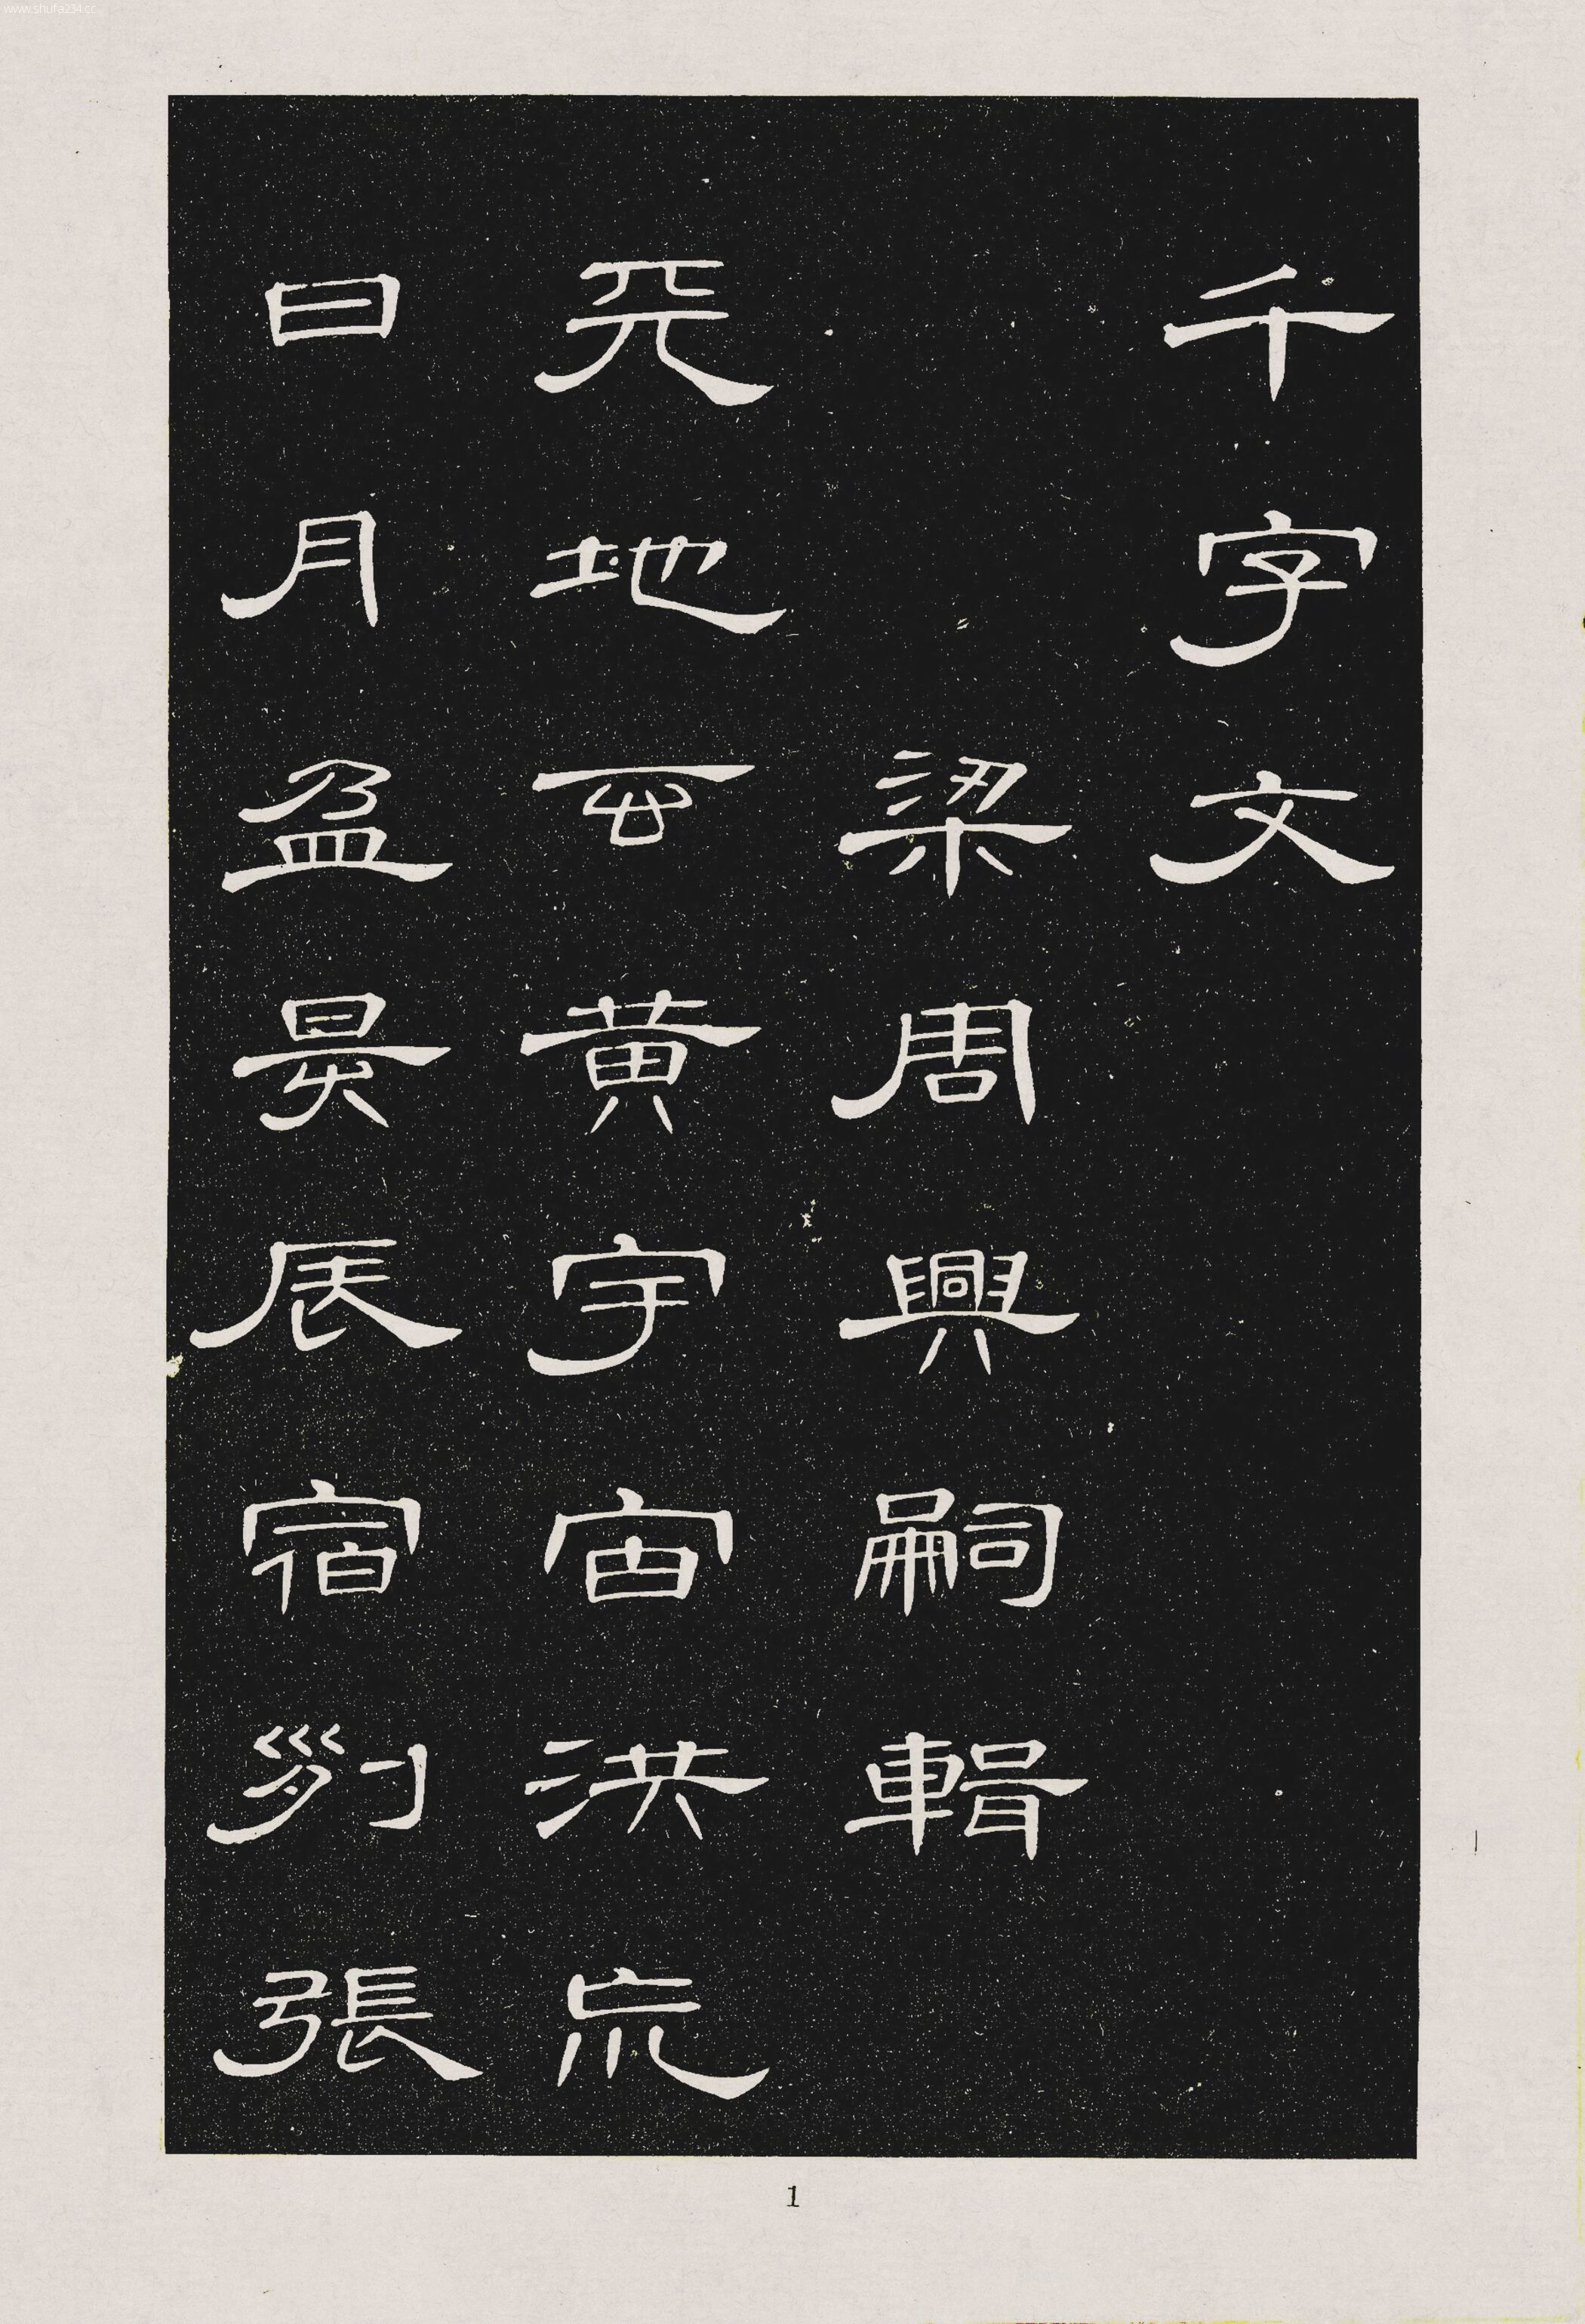 千字文
梁周興嗣輯
天地玄黃宇宙洪荒
日月盈昃辰宿列張
1
www.shufa234.cc